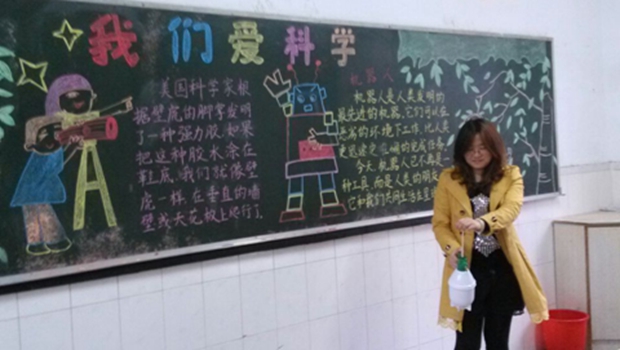 我们爱科学
美国科学家根
据壁虎的脚掌发明
了一种强力胶,如果
把这种胶水涂在
鞋底,我们就像壁
虎一样,在垂直的墙
壁或天花板上爬行了。
机器人
机器人是人类发明的
最先进的机器,它们可以在
危害的环境下工作,比人类
更迅速更
今天,机器人已不再是一
种工具,而是人类的朋友
它和我们共同生活在